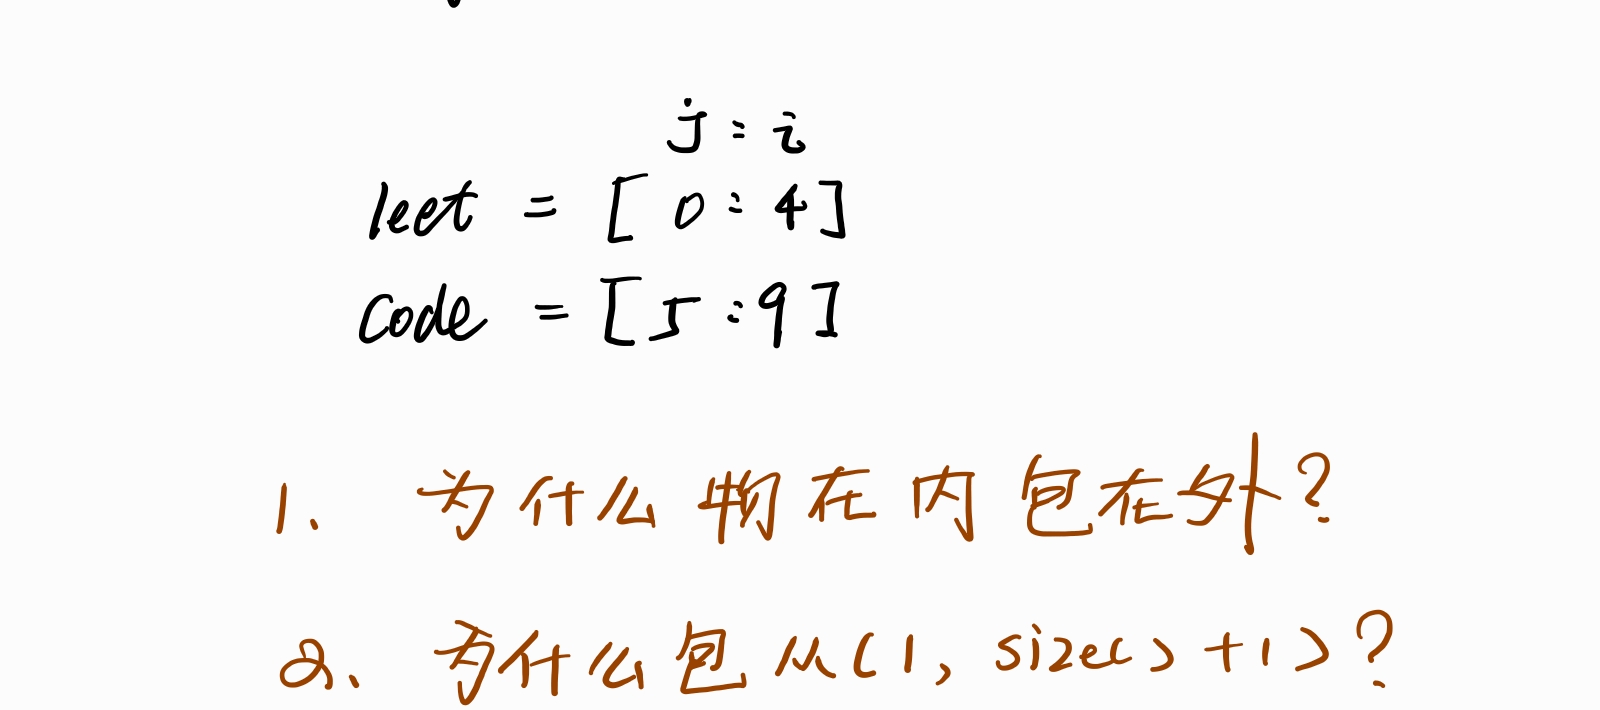 j : i
leet = [ 0 : 4 ]
code = [ 5 : 9 ]
1. 为什么 物在内 包在外?
2、为什么包从(1, size()+1)?